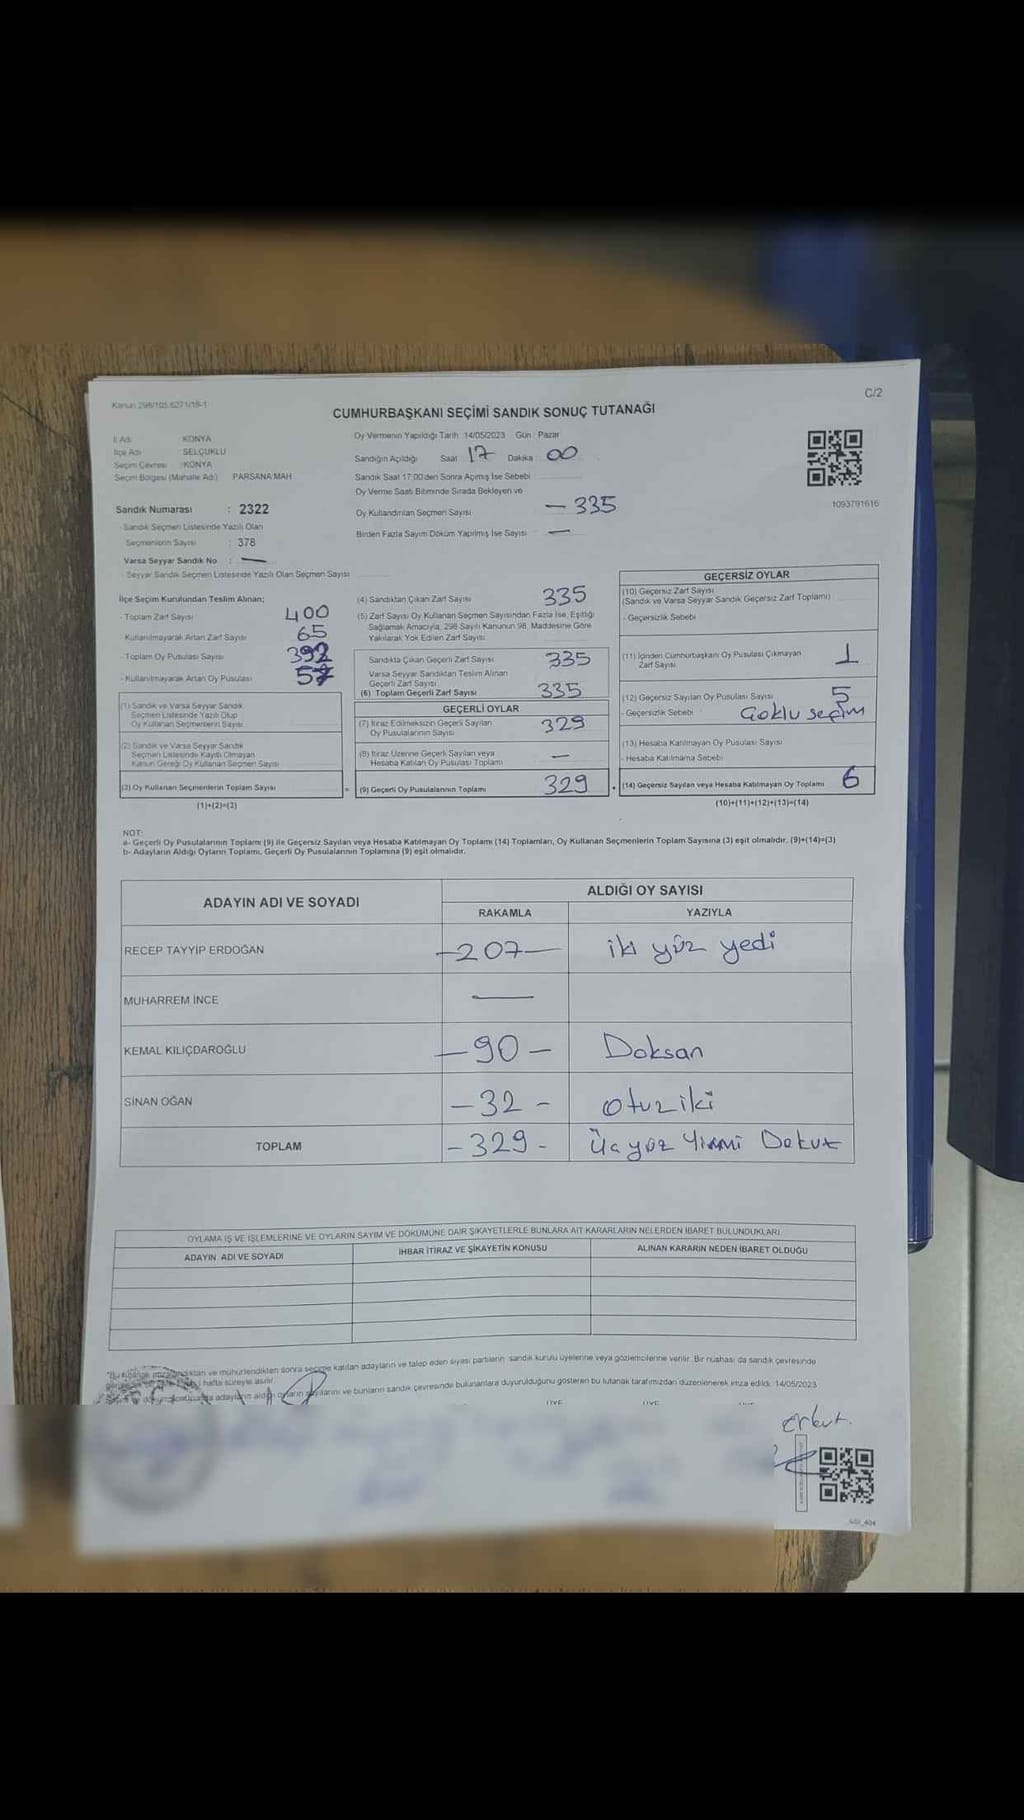 Kanun 298/105,6271/19-1
C/2
CUMHURBAŞKANI SEÇİMİ SANDIK SONUÇ TUTANAĞI
İl Adı KONYA
İlçe Adı SELÇUKLU
Seçim Çevresi :KONYA
Seçim Bölgesi (Mahalle Adı) PARSANA MAH
Sandık Numarası : 2322
- Sandık Seçmen Listesinde Yazılı Olan
Seçmenlerin Sayısı : 378
Varsa Seyyar Sandık No : —
- Seyyar Sandık Seçmen Listesinde Yazılı Olan Seçmen Sayısı
Oy Vermenin Yapıldığı Tarih :14/05/2023 Gün : Pazar
Sandığın Açıldığı Saat 17 Dakika 00
Sandık Saat 17:00'den Sonra Açılmış İse Sebebi
Oy Verme Saati Bitiminde Sırada Bekleyen ve
Oy Kullandırılan Seçmen Sayısı — 335
Birden Fazla Sayım Döküm Yapılmış İse Sayısı —
1093791616
İlçe Seçim Kurulundan Teslim Alınan;
- Toplam Zarf Sayısı 400
- Kullanılmayarak Artan Zarf Sayısı 65
- Toplam Oy Pusulası Sayısı 392
- Kullanılmayarak Artan Oy Pusulası
(1) Sandık ve Varsa Seyyar Sandık
Seçmen Listesinde Yazılı Olup
Oy Kullanan Seçmenlerin Sayısı
(2) Sandık ve Varsa Seyyar Sandık
Seçmen Listesinde Kayıtlı Olmayan
Kanun Gereği Oy Kullanan Seçmen Sayısı
(3) Oy Kullanan Seçmenlerin Toplam Sayısı
(1)+(2)=(3)
(4) Sandıktan Çıkan Zarf Sayısı 335
(5) Zarf Sayısı Oy Kullanan Seçmen Sayısından Fazla İse, Eşitliği
Sağlamak Amacıyla, 298 Sayılı Kanunun 98. Maddesine Göre
Yakılarak Yok Edilen Zarf Sayısı
Sandıkta Çıkan Geçerli Zarf Sayısı 335
Varsa Seyyar Sandıktan Teslim Alınan
Geçerli Zarf Sayısı
(6) Toplam Geçerli Zarf Sayısı 335
GEÇERLİ OYLAR
(7) İtiraz Edilmeksizin Geçerli Sayılan
Oy Pusulalarının Sayısı 329
(8) İtiraz Üzerine Geçerli Sayılan veya
Hesaba Katılan Oy Pusulası Toplamı —
= (9) Geçerli Oy Pusulalarının Toplamı 329
GEÇERSİZ OYLAR
(10) Geçersiz Zarf Sayısı
(Sandık ve Varsa Seyyar Sandık Geçersiz Zarf Toplamı)
- Geçersizlik Sebebi
(11) İçinden Cumhurbaşkanı Oy Pusulası Çıkmayan
Zarf Sayısı 1
(12) Geçersiz Sayılan Oy Pusulası Sayısı 5
- Geçersizlik Sebebi Çoklu seçim
(13) Hesaba Katılmayan Oy Pusulası Sayısı
- Hesaba Katılmama Sebebi
+ (14) Geçersiz Sayılan veya Hesaba Katılmayan Oy Toplamı 6
(10)+(11)+(12)+(13)=(14)
NOT:
a- Geçerli Oy Pusulalarının Toplamı (9) ile Geçersiz Sayılan veya Hesaba Katılmayan Oy Toplamı (14) Toplamları, Oy Kullanan Seçmenlerin Toplam Sayısına (3) eşit olmalıdır. (9)+(14)=(3)
b- Adayların Aldığı Oyların Toplamı, Geçerli Oy Pusulalarının Toplamına (9) eşit olmalıdır.
ADAYIN ADI VE SOYADI ALDIĞI OY SAYISI
RAKAMLA YAZIYLA
RECEP TAYYİP ERDOĞAN —207— iki yüz yedi
MUHARREM İNCE —
KEMAL KILIÇDAROĞLU —90— Doksan
SİNAN OĞAN —32— otuz iki
TOPLAM —329— Üçyüz Yirmi Dokuz
OYLAMA İŞ VE İŞLEMLERİNE VE OYLARIN SAYIM VE DÖKÜMÜNE DAİR ŞİKAYETLERLE BUNLARA AİT KARARLARIN NELERDEN İBARET BULUNDUKLARI
ADAYIN ADI VE SOYADI İHBAR İTİRAZ VE ŞİKAYETİN KONUSU ALINAN KARARIN NEDEN İBARET OLDUĞU
*Bu tutanak ve mühürlendikten sonra seçime katılan adayların ve talep eden siyasi partilerin sandık kurulu üyelerine veya gözlemcilerine verilir. Bir nüshası da sandık çevresinde
hafta süreyle asılır.
adayların aldığı oyların sayılarını ve bunların sandık çevresinde bulunanlara duyurulduğunu gösteren bu tutanak tarafımızdan düzenlenerek imza edildi. 14/05/2023
ÜYE ÜYE